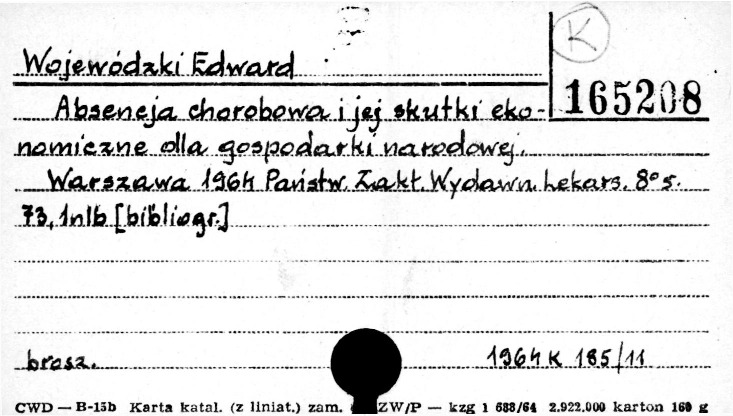 K
Wojewódzki Edward
165208
Absencja chorobowa i jej skutki eko-
nomiczne dla gospodarki narodowej.
Warszawa 1964 Państw. Zakł. Wydawn. Lekars. 8° s.
73, 1 nlb [bibliogr.]
brosz.
1964 K 185/11
CWD — B-15b Karta katal. (z liniat.) zam. ZW/P — kzg 1 688/64 2.922.000 karton 160 g